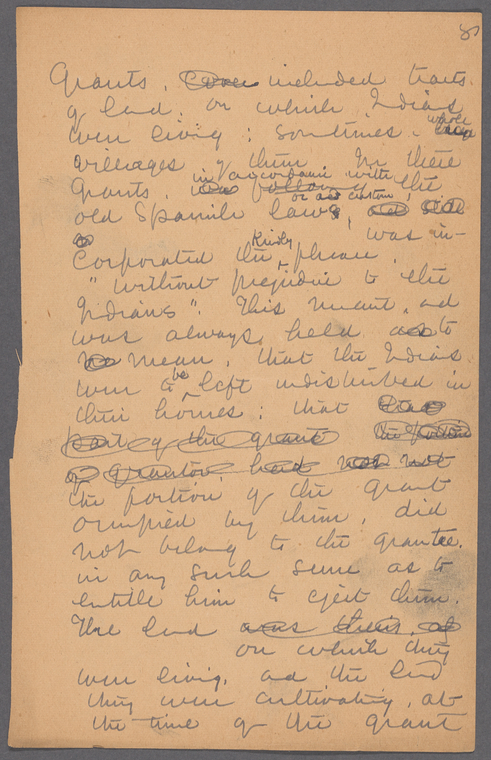 8
Grants, included tracts
of land, on which Indians
were living: sometimes whole
villages of them. In these
Grants, in accordance with the
old Spanish laws, or as custom, was in-
corporated the kindly phrase,
"without prejudice to the
Indians". This meant, and
was always held to
mean, that the Indians
were to be left undisturbed in
their homes: that
part of the grant the portion
of
the portion of the grant
occupied by them, did
not belong to the grantee.
in any such sense as to
entitle him to eject them.
The land was theirs,
on which they
were living, and the land
they were cultivating, at
the time of the grant